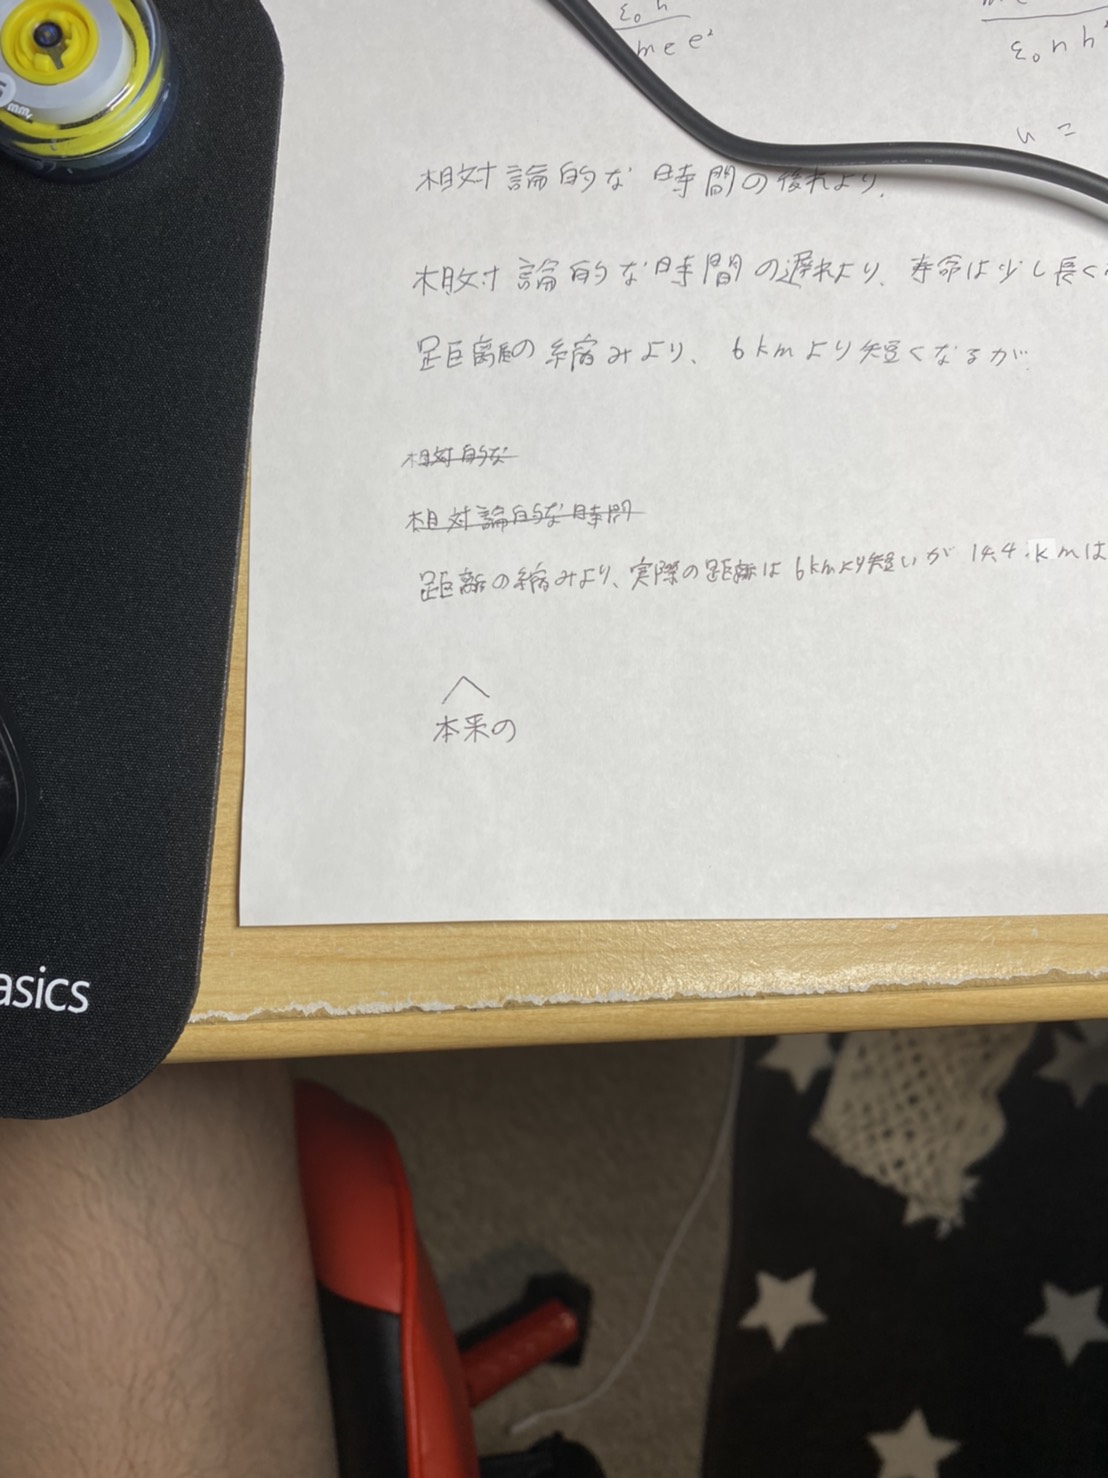 ε₀ h
me e²
ε₀ n h²
u =
相対論的な時間の後れより、
相対論的な時間の遅れより、寿命は少し長く
距離の縮みより、6kmより短くなるが
相対的な
相対論的な時間
距離の縮みより、実際の距離は6kmより短いが 14.4kmは
本来の
5mm
asics